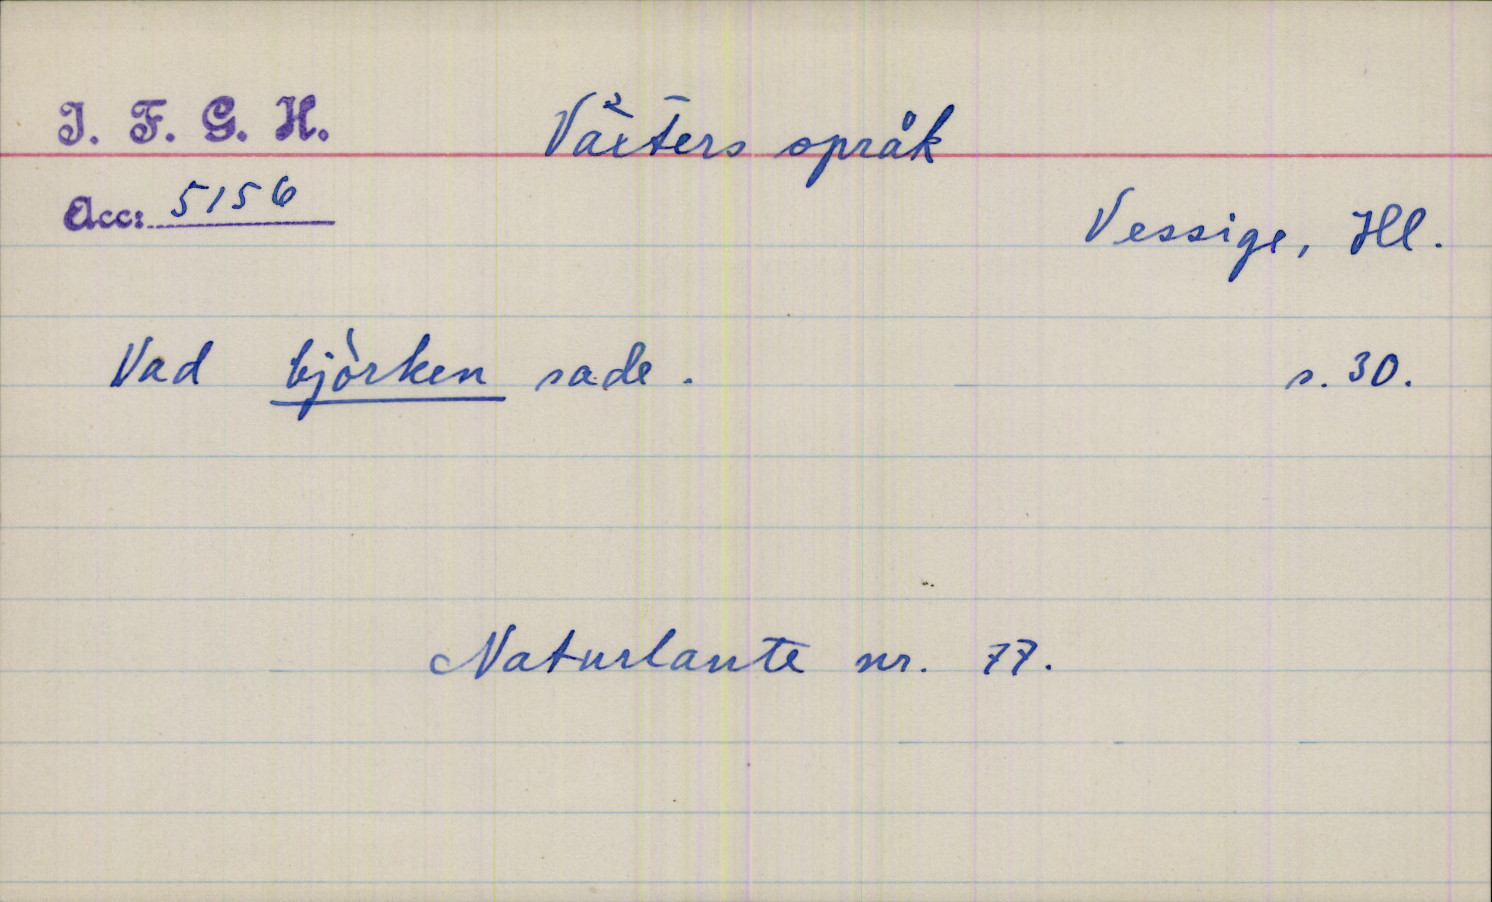 I. F. G. H.
Växters språk
Acc: 5156
Vessige, Hll.
Vad björken sade. s. 30.
Naturlaute nr. 77.